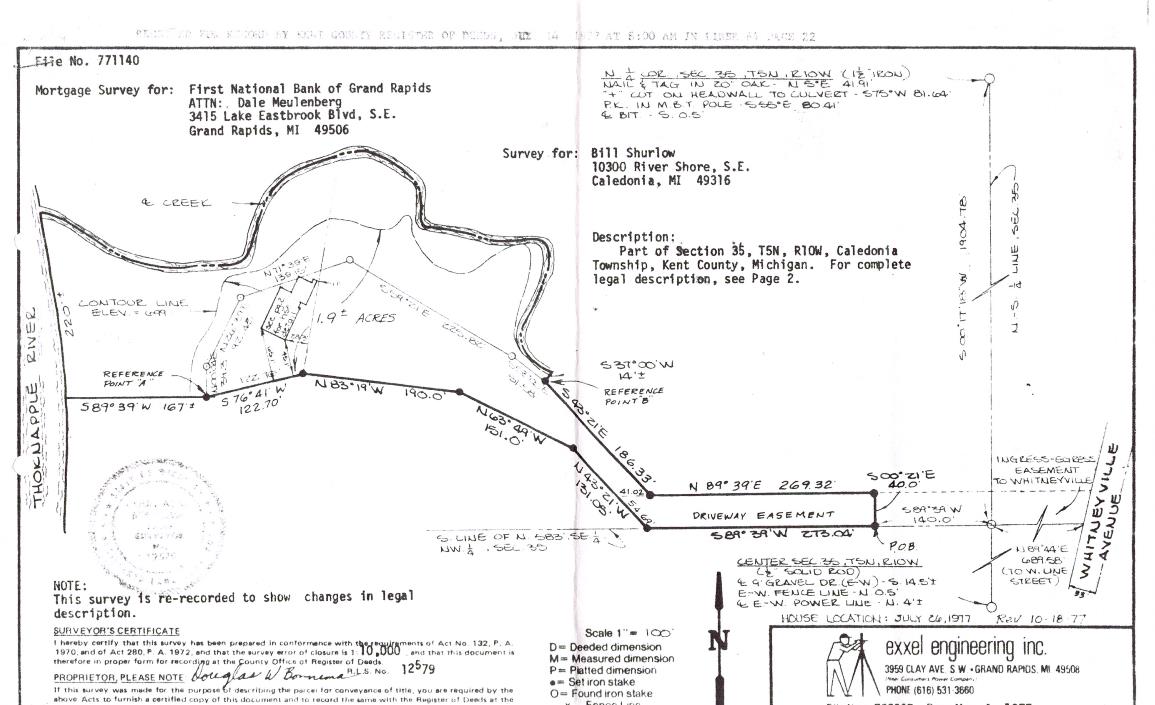 File No. 771140
Mortgage Survey for: First National Bank of Grand Rapids
ATTN: Dale Meulenberg
3415 Lake Eastbrook Blvd, S.E.
Grand Rapids, MI 49506
N ¼ COR. SEC 35, T5N, R10W (1½" IRON)
NAIL & TAG IN 20" OAK - N 5°E 41.91'
"+" CUT ON HEADWALL TO CULVERT - S75°W 81.64'
P.K. IN M.B.T. POLE - S55°E 80.41'
℄ BIT. - S. 0.5'
Survey for: Bill Shurlow
10300 River Shore, S.E.
Caledonia, MI 49316
Description:
Part of Section 35, T5N, R10W, Caledonia
Township, Kent County, Michigan. For complete
legal description, see Page 2.
℄ CREEK
CONTOUR LINE
ELEV. = 699
1.9± ACRES
THORNAPPLE RIVER
220'±
REFERENCE
POINT "A"
S89°39'W 167'±
S76°41'W
122.70'
N83°19'W 190.0'
N63°49'W
151.0'
N43°21'W
131.08'
S37°00'W
14'±
REFERENCE
POINT "B"
S43°21'E 186.33'
41.02'
54.69'
N 89°39'E 269.32'
S00°21'E
40.0'
DRIVEWAY EASEMENT
S89°39'W 273.04'
S89°39'W
140.0'
P.O.B.
S 00°17'18"W 1904.78
N-S ¼ LINE, SEC 35
INGRESS-EGRESS
EASEMENT
TO WHITNEYVILLE
WHITNEYVILLE
AVENUE
N89°44'E
689.58'
(TO W. LINE
STREET)
33'
S. LINE OF N 583' SE ¼
NW ¼, SEC 35
CENTER SEC 35, T5N, R10W
(½" SOLID ROD)
℄ 9' GRAVEL DR (E-W) - S. 14.5'±
E-W. FENCE LINE - N 0.5'
℄ E-W. POWER LINE - N. 4'±
HOUSE LOCATION: JULY 26, 1977 Rev 10-18-77
NOTE:
This survey is re-recorded to show changes in legal
description.
SURVEYOR'S CERTIFICATE
I hereby certify that this survey has been prepared in conformance with the requirements of Act No. 132, P. A.
1970, and of Act 280, P. A. 1972, and that the survey error of closure is 1: 10,000 , and that this document is
therefore in proper form for recording at the County Office of Register of Deeds.
PROPRIETOR, PLEASE NOTE Douglas W Bonnema R.L.S. No. 12579
If this survey was made for the purpose of describing the parcel for conveyance of title, you are required by the
above Acts to furnish a certified copy of this document and to record the same with the Register of Deeds at the
Scale 1" = 100'
D = Deeded dimension
M = Measured dimension
P = Platted dimension
● = Set iron stake
O = Found iron stake
x Fence Line
N
exxel engineering inc.
3959 CLAY AVE. S.W. • GRAND RAPIDS, MI 49508
(Near Consumers Power Company)
PHONE (616) 531-3660